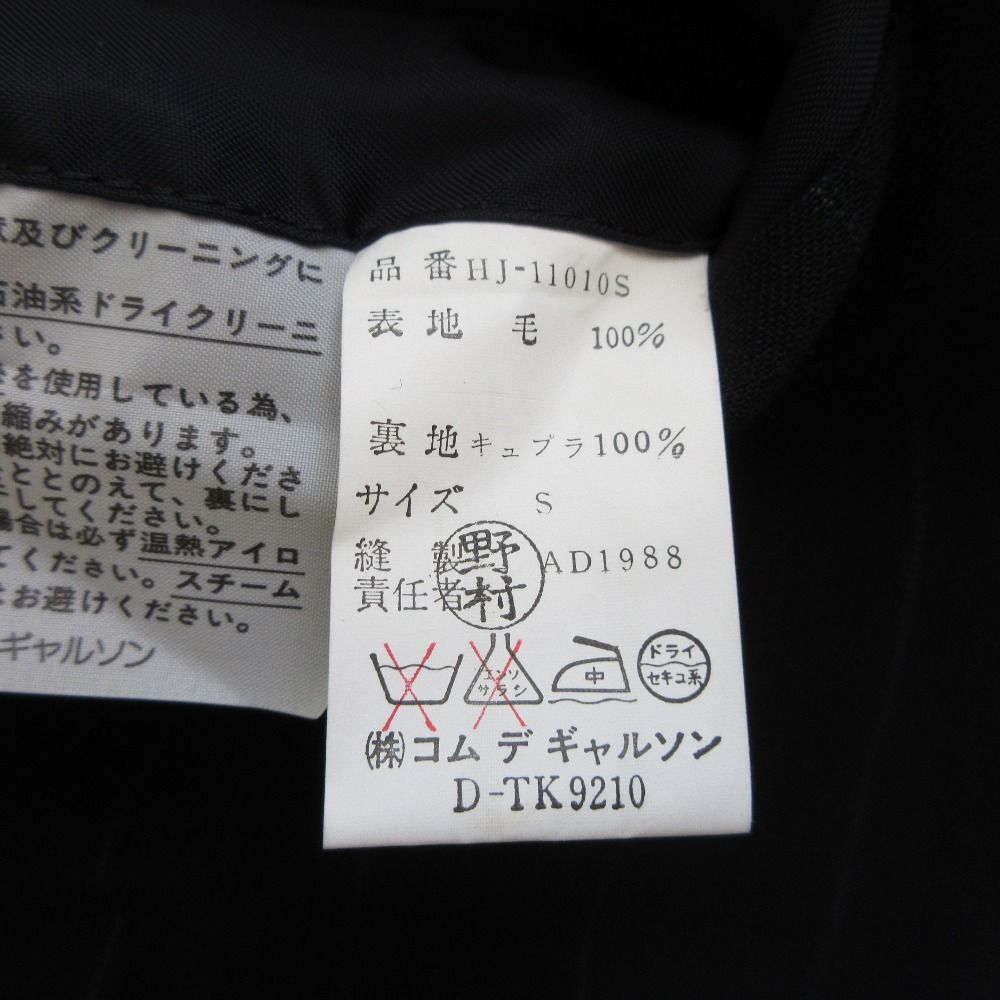 及びクリーニングに
石油系ドライクリーニ
さい。
を使用している為、
縮みがあります。
絶対にお避けくださ
ととのえて、裏にし
してください。
場合は必ず温熱アイロ
てください。スチーム
はお避けください。
ギャルソン
品番 HJ-11010S
表地 毛 100%
裏地 キュプラ 100%
サイズ S
縫製 AD1988
責任者
野村
エンソ
サラシ
中
ドライ
セキユ系
(株)コム デ ギャルソン
D-TK9210